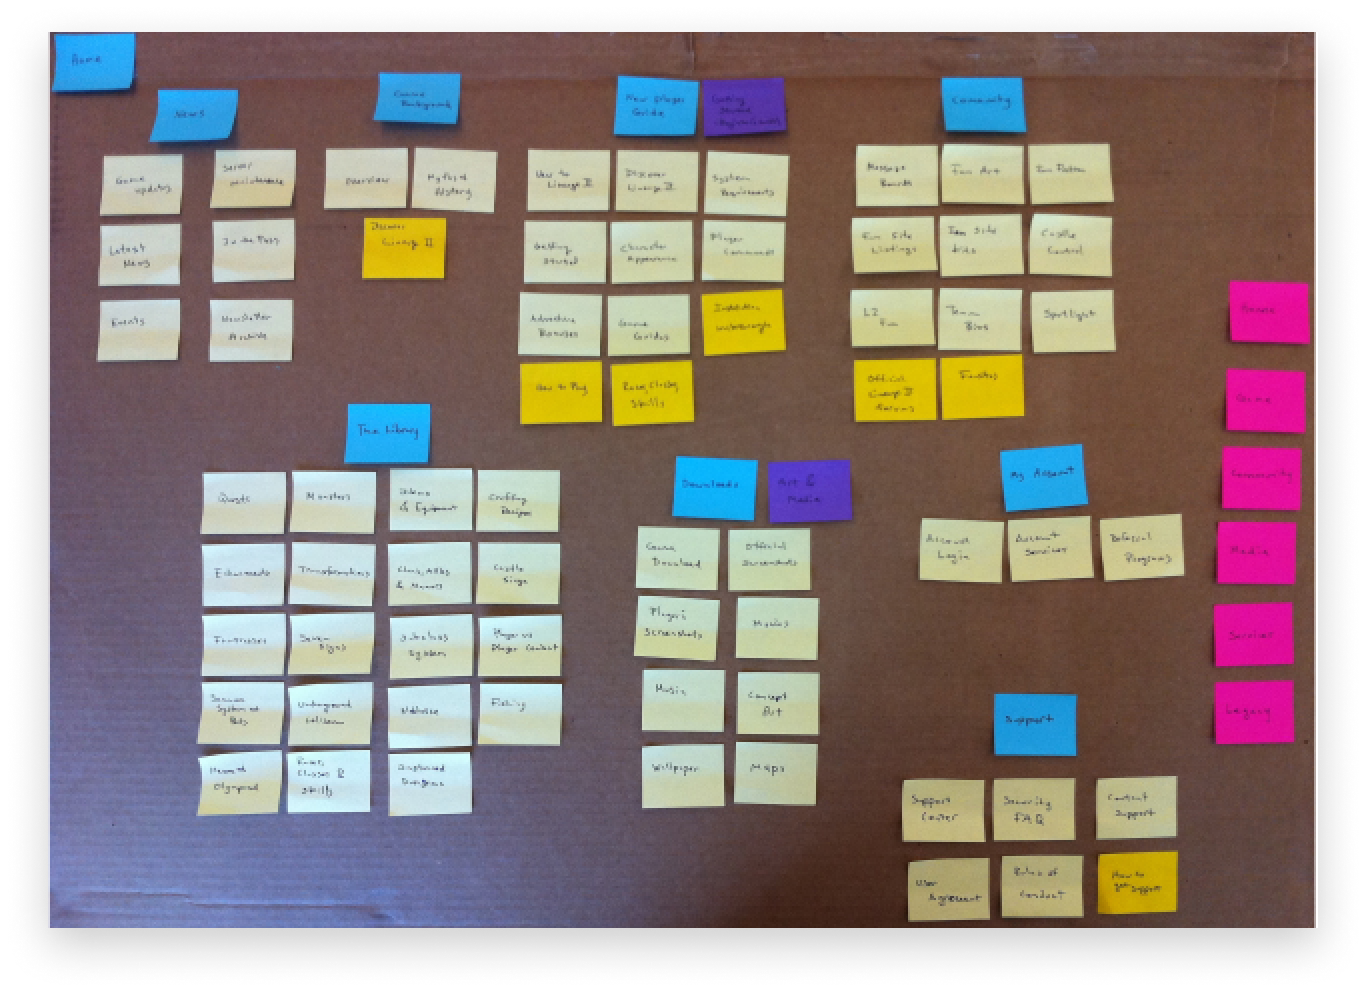 Home
News
Game
updates
Server
maintenance
Latest
News
In the Press
Events
Newsletter
Archive
Game
Background
Overview
Discover
Lineage II
New Player
Guide
Getting
Started
New to
Lineage II
Discover
Lineage II
System
Requirements
Getting
Started
Character
Appearance
Player
Commands
Adventure
Bonuses
Game
Guides
Installation
How to Play
Races, Classes,
Skills
Community
Message
Boards
Fan Art
Fan Fiction
Fan Site
Listings
Fan Site
Kits
Castle
Control
L2
Fun
Team
Bios
Spotlight
Official
Lineage II
Forums
Fansites
The Library
Quests
Monsters
Items
& Equipment
Crafting
Recipes
Transformations
Clans, Allies
&
Castle
Siege
Fortresses
Seven
Signs
Subclass
System
Player vs
Player Combat
Underground
Coliseum
Noblesse
Fishing
Olympiad
Races,
Classes &
Skills
Downloads
Art &
Media
Game
Download
Official
Screenshots
Player's
Screenshots
Movies
Music
Concept
Art
Wallpaper
Maps
My Account
Account
Login
Account
Services
Referral
Programs
Support
Support
Center
Security
FAQ
Content
Support
User
Agreement
Rules of
Conduct
How to
get Support
Game
Community
Media
Services
Legacy